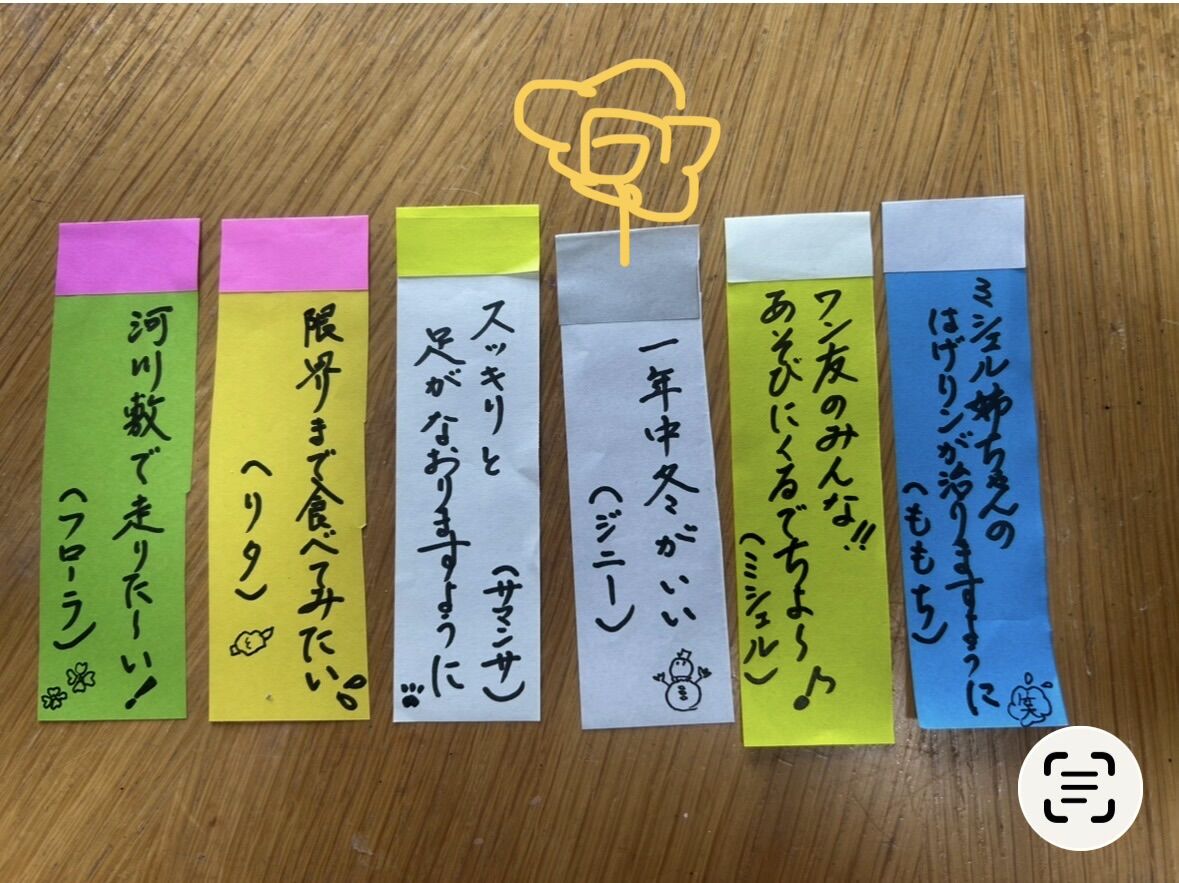 ミシェル姉ちゃんの
はげリンが治りますように
(ももち)
笑
ワン友のみんな!!
あそびにくるでちよ〜♪
(ミシェル)
一年中冬がいい
(ジニー)
スッキリと
足がなおりますように
(サマンサ)
限界まで食べてみたい
(リタ)
河川敷で走りた〜い!
(フローラ)